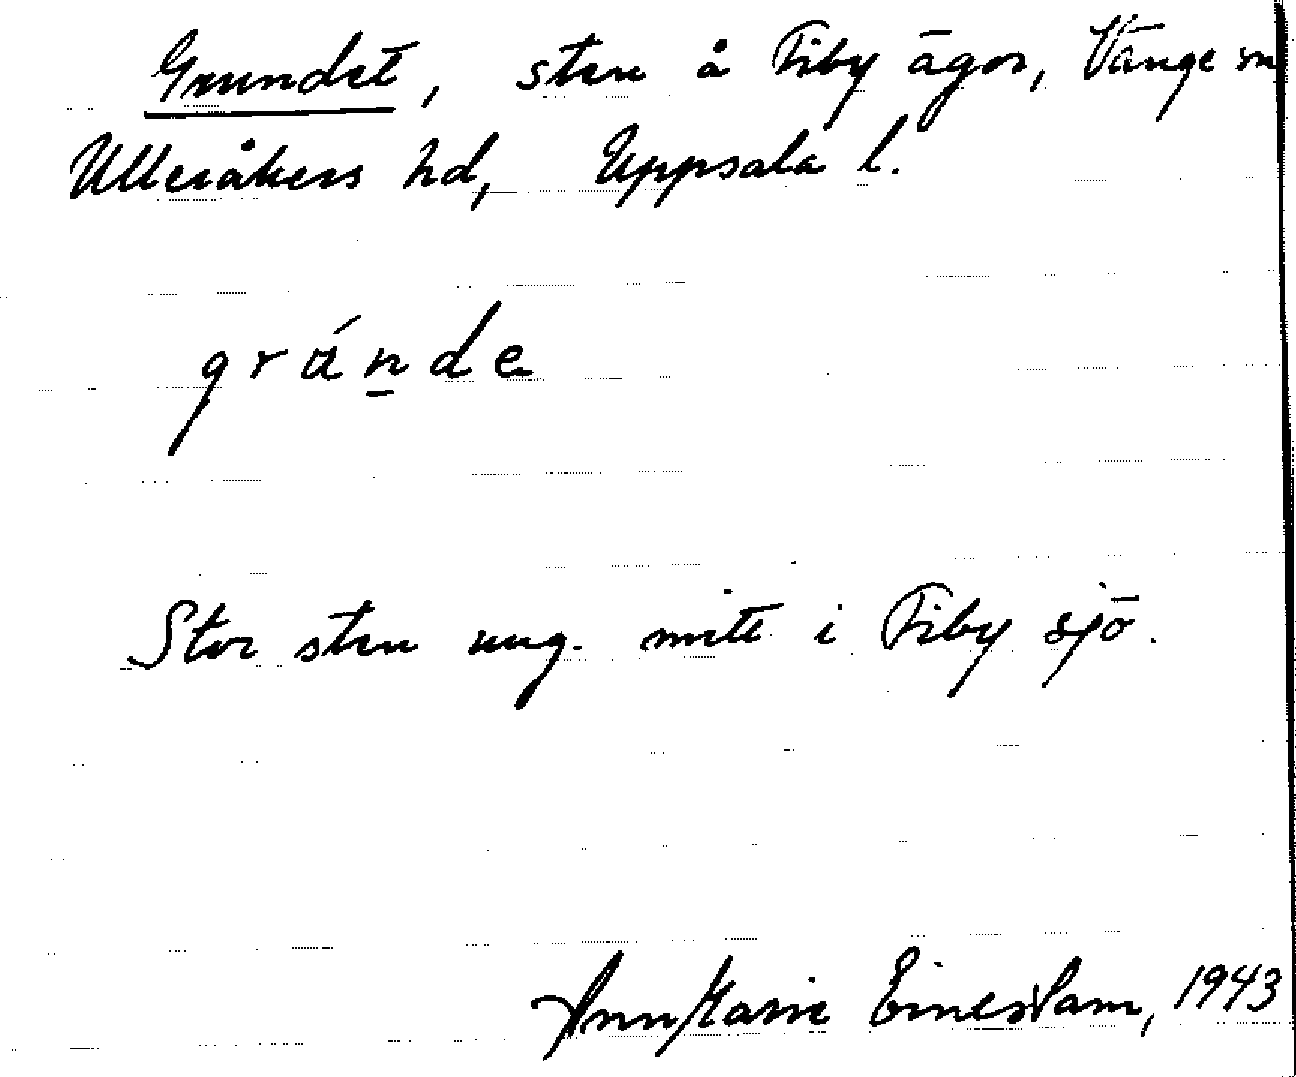 Grundet, sten å Fiby ägor, Vänge sn
Ulleråkers hd, Uppsala l.
gránde
Stor sten ung. mitt i Fiby sjö.
AnnMarie 1943